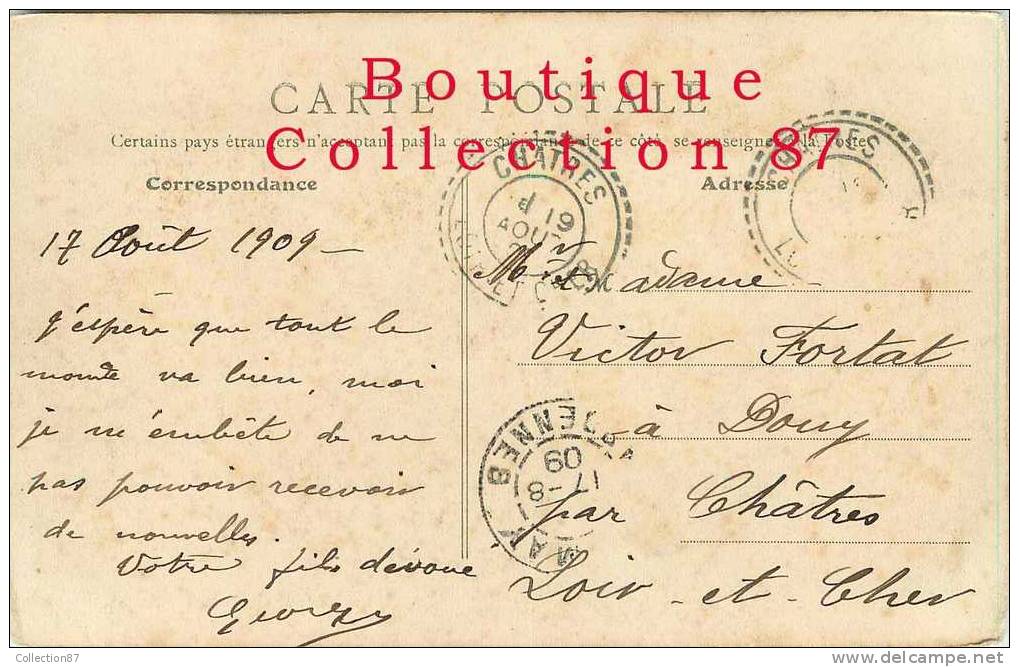 Boutique
CARTE POSTALE
Collection 87
Certains pays étrangers n'acceptant pas la correspondance de ce côté, se renseigner à la Poste
Correspondance
Adresse
CHATRES
19
AOUT
CHATRES
17 Août 1909 —
j'espère que tout le
monde va bien, moi
je m'embête de ne
pas pouvoir recevoir
de nouvelles.
Votre fils dévoué
Georges
Mr et Madame
Victor Fortat
à Douy
par Châtres
Loir-et-Cher
17-8
09
Collection87
delcampe.net